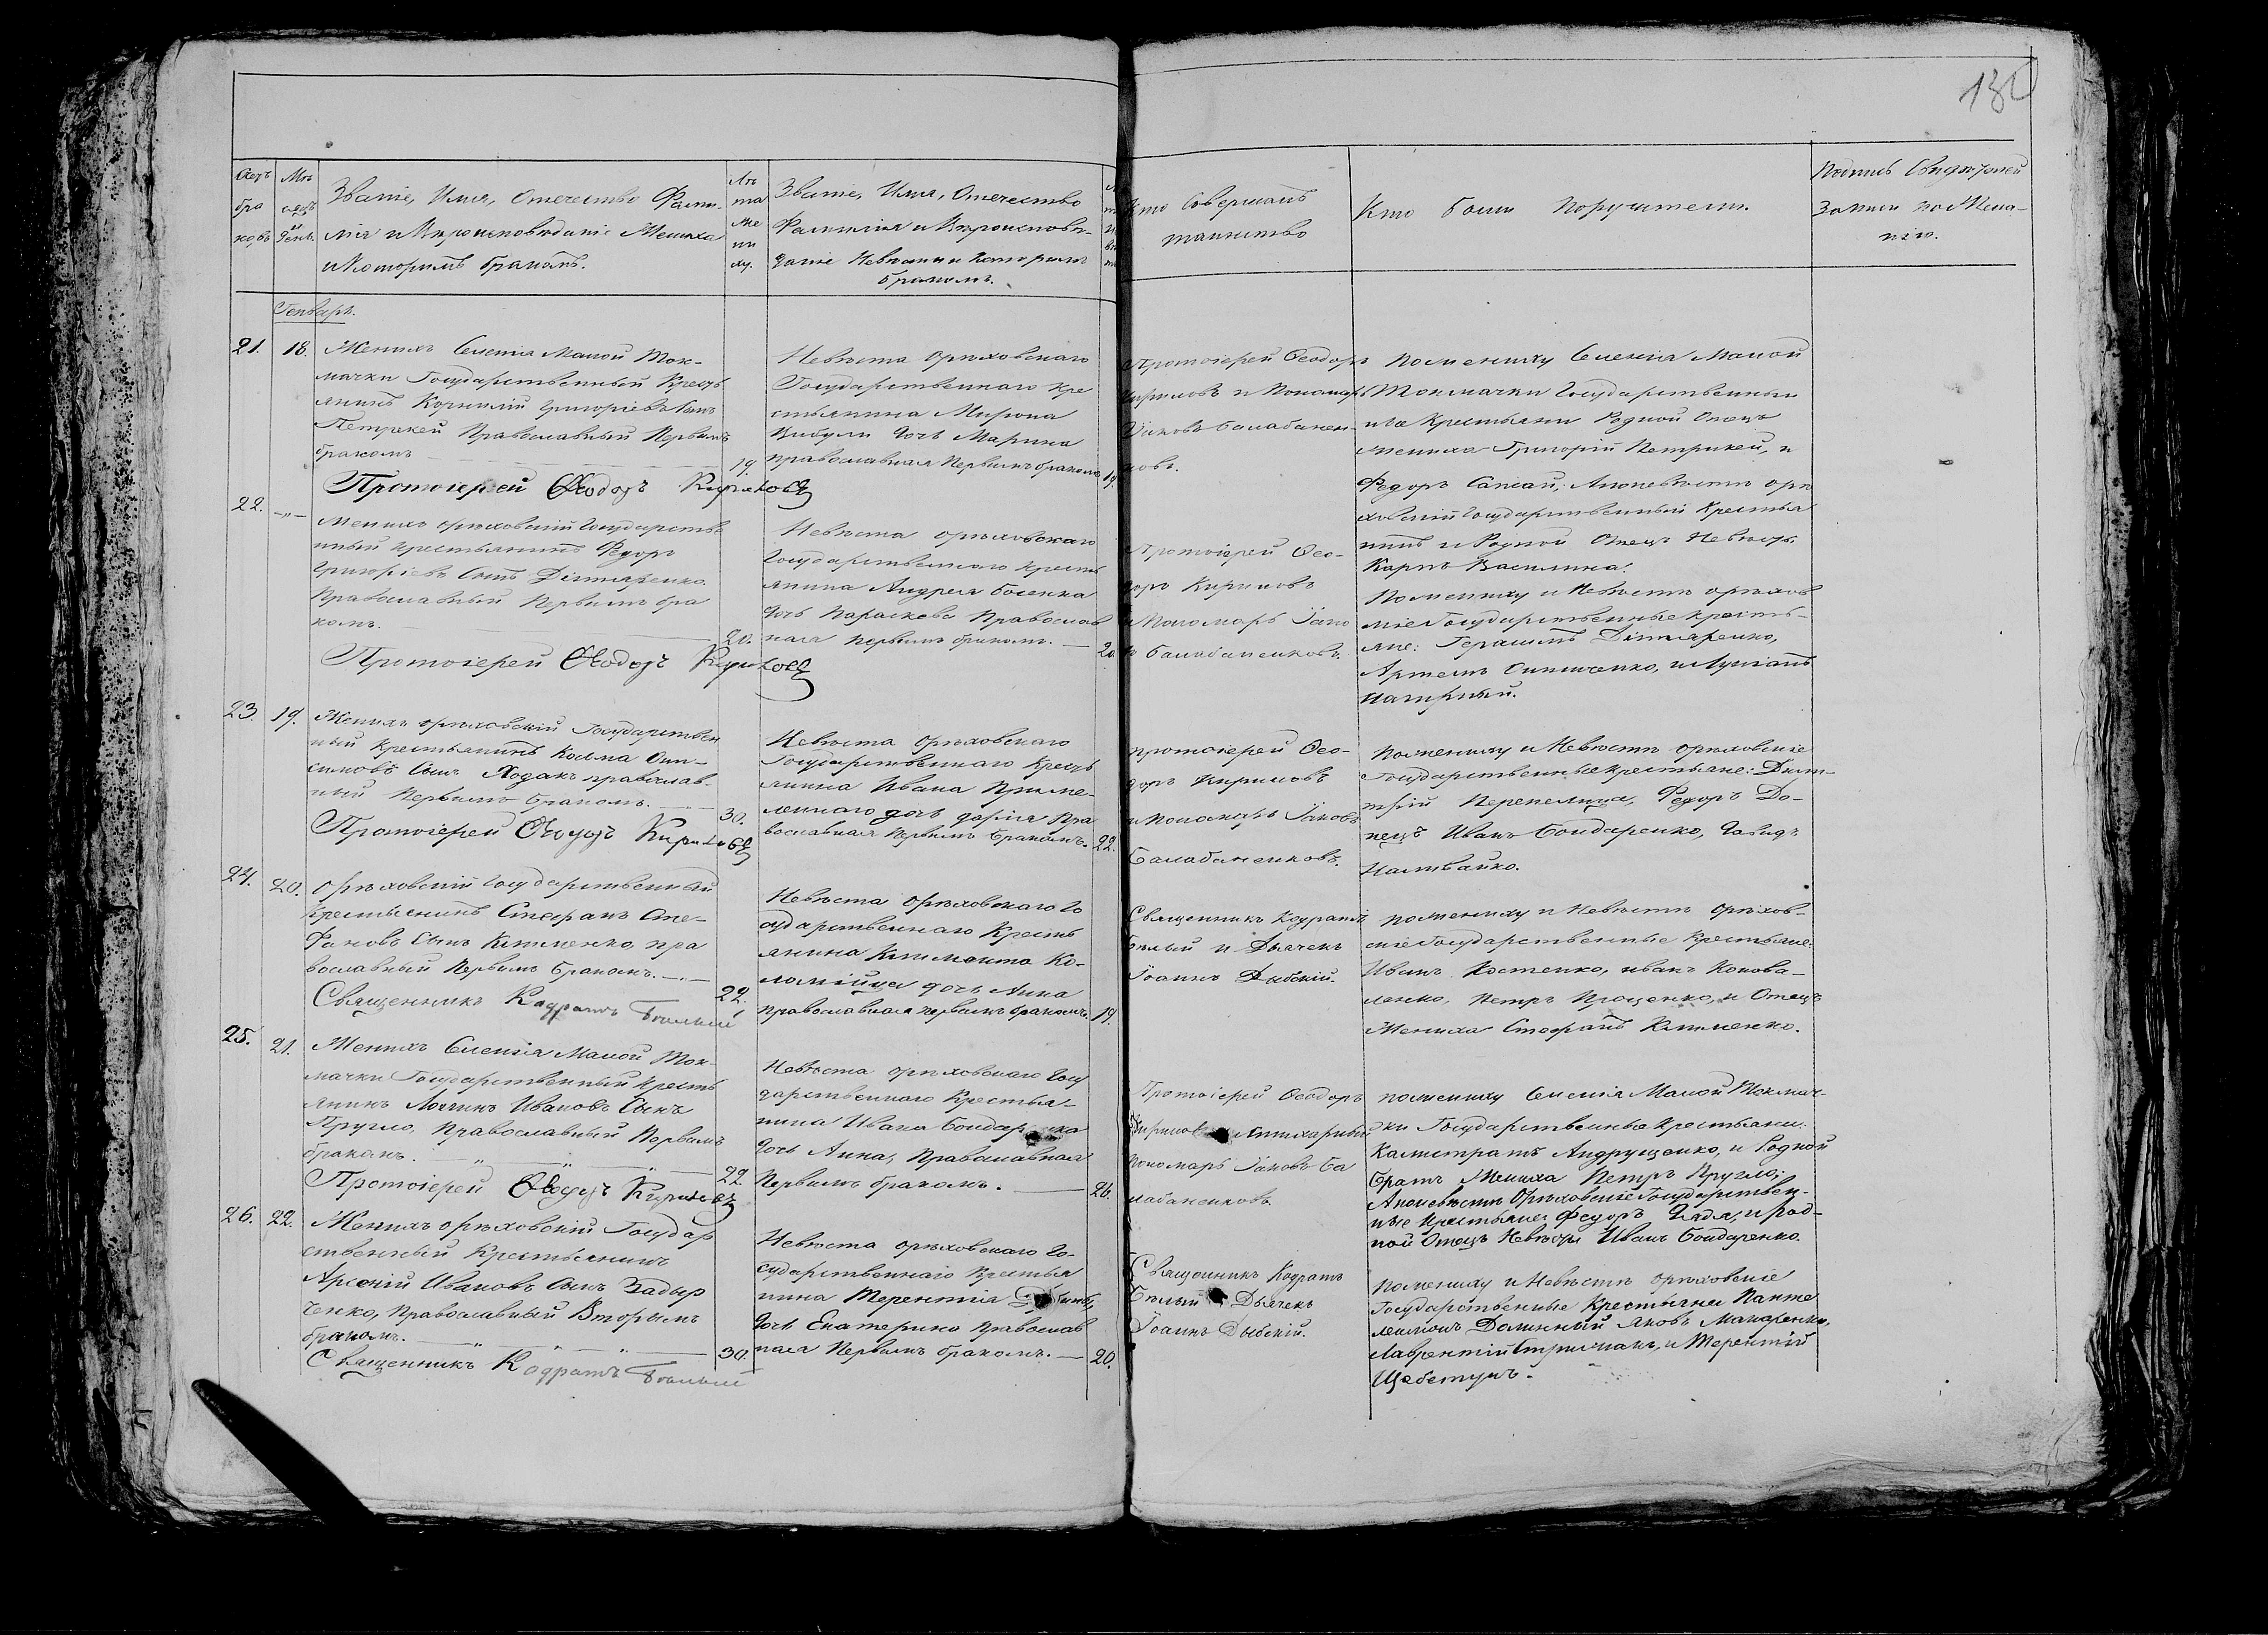 132
Счетъ браковъ
Мѣсяцъ и День.
Званіе, Имя, Отечество Фами-
лія и Вѣроисповѣданіе Жениха
и Которымъ бракомъ.
Лѣта Жениху.
Званіе, Имя, Отечество
Фамилія и Вѣроисповѣ-
даніе Невѣсты и Которымъ
бракомъ.
Кто Совершалъ
таинство
Кто были Поручители.
Подпись Свидѣтелей
Записи по Жела-
нію.
Генварь.
21. 18.
Женихъ Селенія Малой Ток-
мачки Государственный Кресть
янинъ Корнилій Григоріевъ Сынъ
Петрикей Православный Первымъ
бракомъ 19.
Протоіерей Ѳеодоръ Кириловъ
Невѣста Орѣховскаго
Государственнаго Кре
стьянина Мирона
Цибули дочь Марина
православная Первымъ бракомъ 19.
Протоіерей Ѳеодоръ
Кириловъ и Пономарь
Іаковъ Балабанен-
ковъ.
По жениху Селенія Малой
Токмачки Государственныи
Крестьяни Родной Отецъ
жениха Григорій Петрикей, и
Федоръ Сапсай; А по невѣстѣ Орѣ
ховскій Государственный Крестья
нинъ и Родной Отецъ Невѣсты
22. —„—
Женихъ орѣховскій Государстве
нный Крестьянинъ Федоръ
Григоріевъ Сынъ Дѣхтяренко
Православный Первымъ бра
комъ. 20.
Протоіерей Ѳеодоръ Кириловъ
Невѣста орѣховскаго
Государственнаго Кресть
янина Андрея
дочь Параскева Православ
ная первымъ бракомъ. — 20.
Протоіерей Ѳео-
доръ Кириловъ
и Пономарь Іако
въ Балабаненковъ.
По жениху и Невѣстѣ орѣхов
скіе Государственные Кресть-
яне: Герасимъ Дѣхтяренко,
23. 19.
Женихъ орѣховскій Государствен
ный Крестьянинъ Козма Они-
симовъ Сынъ Ходакъ православ-
ный Первымъ бракомъ. — 30.
Протоіерей Ѳеодоръ Кириловъ
Невѣста Орѣховскаго
Государственнаго Кресть
янина Ивана
дочь Дарія Пра
вославная Первымъ бракомъ. 22.
Протоіерей Ѳео-
доръ Кириловъ
и Пономарь Іаковъ
Балабаненковъ.
По жениху и Невѣстѣ орѣховскіе
Государственные крестьяне: Дими-
трій Перепелица, Федоръ До-
нецъ Иванъ Бондаренко, Давидъ
24. 20.
Орѣховскій Государственный
Крестьянинъ Стефанъ Сте-
фановъ Сынъ Клименко, пра
вославный Первымъ бракомъ. —„— 22.
Священникъ Кодратъ Бѣлый
Невѣста Орѣховскаго Го
сударственнаго Кресть
янина Климента Ко-
ломійца дочь Анна
православная первымъ бракомъ. 19.
Священникъ Кодратъ
Бѣлый и Дьячекъ
Іоаннъ Дыбскій.
По жениху и Невѣстѣ Орѣхов-
скіе Государственные Крестьяне:
Иванъ Костенко, Иванъ Конова-
ленко, Петръ Проценко, и Отецъ
Жениха Стефанъ Клименко.
25. 21.
Женихъ Селенія Малой Ток-
мачки Государственный Кресть
янинъ Логгинъ Ивановъ Сынъ
Кругло, Православный Первымъ
бракомъ. 22
Протоіерей Ѳеодоръ Кириловъ
Невѣста орѣховскаго Госу
дарственнаго Крестья-
нина Ивана Бондаренка
дочь Анна, Православная
Первымъ бракомъ. — 26.
Протоіерей Ѳеодоръ
Кириловъ
Пономарь Іаковъ Ба
лабаненковъ.
По жениху Селенія Малой Токмач-
ки Государственные Крестьяни:
Калистратъ Андрущенко, и Родной
Братъ Жениха Петръ Кругло;
А по невѣстѣ Орѣховскіе Государствен-
ные Крестьяне Федоръ и Род-
ной Отецъ Невѣсты Иванъ Бондаренко.
26. 22.
Женихъ орѣховскій Государ
ственный Крестьянинъ
Арсеній Ивановъ Сынъ Задыр
ченко, Православный Вторымъ
бракомъ. 30.
Священникъ Кодратъ Бѣлый
Невѣста орѣховскаго Го-
сударственнаго Крестья
нина Терентія
дочь Екатерина Православ
ная Первымъ бракомъ. — 20.
Священникъ Кодратъ
Бѣлый Дьячекъ
Іоаннъ Дыбскій.
По жениху и Невѣстѣ орѣховскіе
Государственные Крестьяне Панте
леимонъ Долинный Яковъ Макаренко,
Лаврентій и Терентій
Щебетунъ.